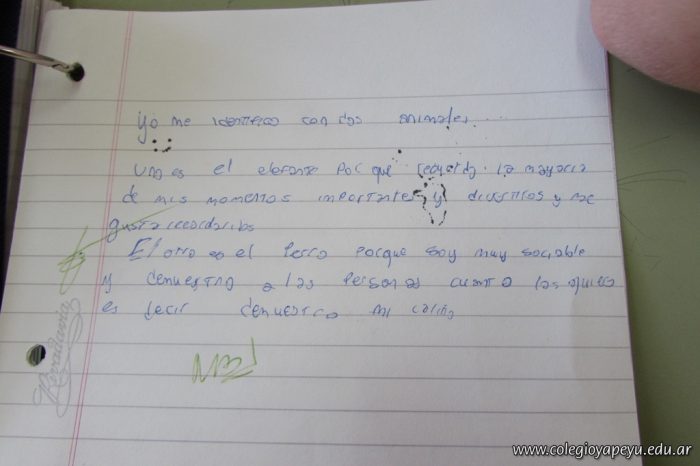 yo me identifico con dos animales...
uno es el elefante porque recuerdo la mayoria
de mis momentos importantes y divertidos y me
gusta recordarlos
El otro es el perro porque soy muy sociable
y demuestro a las personas cuanto las quiero
es decir demuestro mi cariño
Rivadavia
www.colegioyapeyu.edu.ar